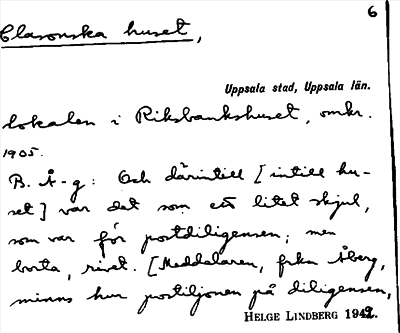 6
Clasonska huset,
Uppsala stad, Uppsala län.
lokalen i Riksbankshuset, omkr.
1905.
B. Å-g: Och därintill [intill hu-
set] var det som ett litet skjul,
som var för postdiligensen; men
borta, rivet. [Meddelaren, frkn Åberg,
minns hur postiljonen på diligensen,
HELGE LINDBERG 1942.